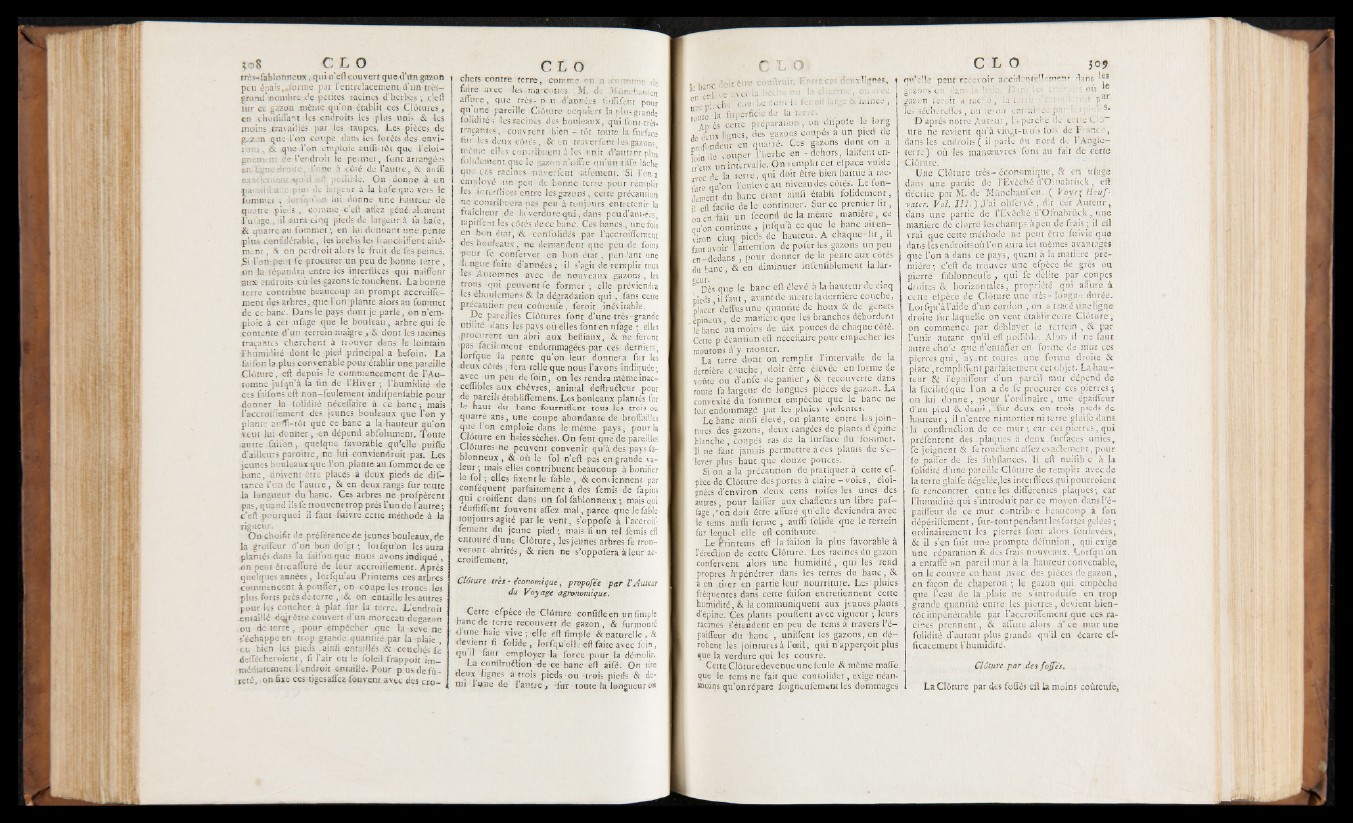 308 CLO
très-ſablonneux, qui n'eſt couvert que d'un gazon
peu épais, formé par l'entrelacement d'un très-
grand nombre de petites racines d'herbes, c'eſt
ſur ce gazon même qu'on établit ces Clôtures,
en choiſiſſant les endroits les plus unis & les
moins travaillés par les taupes. Les pièces de
gazon que l'on coupe dans les forêts des envi-
rons, & que l'on emploie auſſi-tôt que l'éloi-
gnement de l'endroit le permet, ſont arrangées
en ligne droite, l'une à côté de l'autre, & auſſi
exactement qu'il eſt poſſible. On donne à un
pareil banc plus de largeur à la baſe que vers le
ſommet, lorſqu'on lui donne une hauteur de
quatre pieds, comme c'eſt aſſez généralement
l'uſage, il aura cinq pieds de largeur à ſa baſe,
& quatre au ſommet; en lui donnant une pente
plus conſidérable, les brebis les franchiſſent aiſé-
ment, & on perdroit alors le fruit de ſes peines.
Si l'on peut ſe procurer un peu de bonne terre,
on la répandra entre les interſtices qui naiſſent
aux endroits où les gazons ſe touchent. La bonne
terre contribue beaucoup au prompt accroiſſe-
ment des arbres, que l'on plante alors au ſommet
de ce banc. Dans le pays dont je parle, on n'em-
ploie à cet uſage que le bouleau, arbre qui ſe
contente d'un terrein maigre, & dont les racines
traçantes cherchent à trouver dans le lointain
l'humidité dont le pied principal a beſoin. La
ſaiſon la plus convenable pour établir une pareille
Clôture, eſt depuis le commencement de l'Au-
tomne juſqu'à la fin de l'Hiver; l'humidité de
ces ſaiſons eſt non-ſeulement indiſpenſable pour
donner la ſolidité néceſſaire à ce banc; mais
l'accroiſſement des jeunes bouleaux que l'on y
plante auſſi-tôt que ce banc a la hauteur qu'on
veut lui donner, en dépend abſolument. Toute
autre ſaiſon, quelque favorable qu'elle puiſſe
d'ailleurs paroître, ne lui conviendroit pas. Les
jeunes bouleaux que l'on plante au ſommet de ce
banc, doivent être placés à deux pieds de diſ-
tance l'un de l'autre, & en deux rangs ſur toute
la longueur du banc. Ces arbres ne proſpèrent
pas, quand ils ſe trouvent trop près l'un de l'autre;
c'eſt pourquoi il faut ſuivre cette méthode à la
rigueur.
On choiſit de préférence de jeunes bouleaux, de
la groſſeur d'un bon doigt; lorſqu'on les aura
plantés dans la ſaiſon que nous avons indiqué,
on peut être aſſuré de leur accroiſſement. Après
quelques années, lorſqu'au Printems ces arbres
commencent à pouſſer, on coupe les troncs les
plus forts près de terre, & on entaille les autres
pour les coucher à plat ſur la terre. L'endroit
entaillé doit être couvert d'un morceau de gazon
ou de terre, pour empêcher que la sève ne
s'échappe en trop grande quantité par la plaie,
ou bien les pieds ainſi entaillés & couchés ſe
deſſècheroient, ſi l'air ou le ſoleil frappoit im-
médiatement l'endroit entaillé. Pour plus de ſû-
reté, on fixe ces tiges aſſez ſouvent avec des cro-
CLO
chets contre terre, comme on a coutume de
faire avec les marcottes. M. de Münchauſen
aſſure, que très-peu d'années ſuffiſent pour
qu'une pareille Clôture acquière la plus grande
ſolidité; les racines des bouleaux, qui ſont très-
traçantes, couvrent bien-tôt toute la ſurface
ſur les deux côtés, & en traverſent les gazons,
même elles contribuent à les unir d'autant plus
ſolidement que le gazon n'offre qu'un tiſſu lâche
que ces racines traverſent aiſément. Si l'on a
employé un peu de bonne terre pour remplir
les interſtices entre les gazons, cette précaution
ne contribuera pas peu à toujours entretenir la
fraîcheur de la verdure qui, dans peu d'années,
tapiſſent les côtés de ce banc. Ces bancs, une fois
en bon état, & conſolidés par l'accroiſſement
des bouleaux, ne demandent que peu de ſoins
pour ſe conſerver en bon état, pendant une
longue ſuite d'années; il s'agit de remplir tous
les Automnes avec de nouveaux gazons, les
trous qui peuvent ſe former; elle préviendra
les éboulemens & la dégradation qui, ſans cette
précaution peu coûteuſe, ſeroit inévitable.
De pareilles Clôtures ſont d'une très-grande
utilité dans les pays où elles ſont en uſage; elles
procurent un abri aux beſtiaux, & ne ſeront
pas facilement endommagées par ces derniers,
lorſque la pente qu'on leur donnera ſur les
deux côtés, ſera telle que nous l'avons indiquée;
avec un peu de ſoin, on les rendra même inac-
ceſſibles aux chèvres, animal deſtructeur pour
de pareils établiſſemens. Les bouleaux plantés ſur
le haut du banc fourniſſent tous les trois ou
quatre ans, une coupe abondante de broſſailles
que l'on emploie dans le même pays, pour la
Clôture en haies sèches. On ſent que de pareilles
Clôtures ne peuvent convenir qu'à des pays ſa-
blonneux, & où le ſol n'eſt pas en grande va-
leur; mais elles contribuent beaucoup à bonifier
le ſol; elles fixent le ſable, & conviennent par
conſéquent parfaitement à des ſemis de ſapins
qui croiſſent dans un ſol ſablonneux; mais qui
réuſſiſſent ſouvent aſſez mal, parce que le ſable
toujours agité par le vent, s'oppoſe à l'accroiſ-
ſement du jeune pied; mais ſi un tel ſemis eſt
entouré d'une Clôture, les jeunes arbres ſe trou-
veront abrités, & rien ne s'oppoſera à leur ac-
croiſſement.
Clôture très-économique, propoſée par l'Auteur
du Voyage agronomique.
Cette eſpèce de Clôture conſiſte en un ſimple
banc de terre recouvert de gazon, & ſurmonté
d'une haie vive; elle eſt ſimple & naturelle, &
devient ſi ſolide, lorſqu'elle eſt faite avec ſoin,
qu'il faut employer la force pour la démolir.
La conſtruction de ce banc eſt aiſé. On tire
deux lignes à trois pieds ou trois pieds & de-
mi l'une de l'autre, ſur toute la longueur où
CLO
le banc doit être conſtruit. Entre ces deux lignes,
toute la ſuperficie de la terre.
Après cette préparation, on diſpoſe le long
de deux lignes, des gazons coupés à un pied de
profondeur en quarré. Ces gazons dont on a
ſoin de couper l'herbe en-dehors, laiſſent en-
tr'eux un intervalle. On remplit cet eſpace vuide
avec de la terre, qui doit être bien battue à me-
ſure qu'on l'enlève au niveau des côtés. Le fon-
dement du banc étant ainſi établi ſolidement,
il eſt facile de le continuer. Sur ce premier lit,
on en fait un ſecond de la même manière, ce
qu'on continue, juſqu'à ce que le banc ait en-
viron cinq pieds de hauteur. A chaque lit, il
faut avoir l'attention de poſer les gazons un peu
en-dedans, pour donner de la pente aux côtés
du banc, & en diminuer inſenſiblement la lar-
geur.
Dès que le banc eſt élevé à la hauteur de cinq
pieds, il faut, avant de mettre la dernière couche,
placer deſſus une quantité de houx & de genets
épineux, de manière que les branches débordent
le banc au moins de dix pouces de chaque côté.
Cette précaution eſt néceſſaire pour empêcher les
moutons d'y monter.
La terre dont on remplit l'intervalle de la
dernière couche, doit être élevée en forme de
voûte ou d'anſe de panier, & recouverte dans
toute ſa largeur de longues pièces de gazon. La
convexité du ſommet empêche que le banc ne
ſoit endommagé par les pluies violentes.
Le banc ainſi élevé, on plante entre les join-
tures des gazons, deux rangées de plants d'épine
blanche, coupés ras de la ſurface du ſommet.
Il ne faut jamais permettre à ces plants de s'é-
lever plus haut que douze pouces.
Si on a la précaution de pratiquer à cette eſ-
pèce de Clôture des portes à claire-voies, éloi-
gnées d'environ deux cens toiſes les unes des
autres, pour laiſſer aux chaſſeurs un libre paſ-
ſage, on doit être aſſuré qu'elle deviendra avec
le tems auſſi ferme, auſſi ſolide que le terrein
ſur lequel elle eſt conſtruite.
Le Printems eſt la ſaiſon la plus favorable à
l'érection de cette Clôture. Les racines du gazon
conſervent alors une humidité, qui les rend
propres à pénétrer dans les terres du banc, &
à en tirer en partie leur nourriture. Les pluies
fréquentes dans cette ſaiſon entretiennent cette
humidité, & la communiquent aux jeunes plants
d'épine. Ces plants pouſſent avec vigueur; leurs
racines s'étendent en peu de tems à travers l'é-
paiſſeur du banc, uniſſent les gazons, en dé-
robent les jointures à l'œil, qui n'apperçoit plus
que la verdure qui les couvre.
Cette Clôture devenue une ſeule & même maſſe
que le tems ne fait que conſolider, exige néan-
moins qu'on répare ſoigneuſement les dommages
CLO 309
qu'elle peut recevoir accidentellement dans les
D'après notre Auteur, la perche de cette Clô-
ture ne revient qu'à vingt-trois ſols de France,
dans les endroits (il parle du nord de l'Angle-
terre) où les manœuvres ſont au fait de cette
Clôture.
Une Clôture très-économique, & en uſage
dans une partie de l'Evêché d'Oſnabrück, eſt
décrite par M. de Münchauſen. (Voyez Hauſ-
vater. Vol. III.) J'ai obſervé, dit cet Auteur,
dans une partie de l'Evêché d'Oſnabrück, une
manière de clorre les champs à peu de frais; il eſt
vrai que cette méthode ne peut être ſuivie que
dans les endroits où l'on aura les mêmes avantages
que l'on a dans ce pays, quant à la matière pre-
mière; c'eſt de trouver une eſpèce de grès ou
pierre ſablonneuſe, qui ſe délite par coupes
droites & horizontales, propriété qui aſſure à
cette eſpèce de Clôture une très-longue durée.
Lorſqu'à l'aide d'un cordon, on a tracé une ligne
droite ſur laquelle on veut établir cette Clôture,
on commence par déblayer le terrein, & par
l'unir autant qu'il eſt poſſible. Alors il ne faut
autre choſe que d'entaſſer en forme de mur ces
pierres qui, ayant toutes une forme droite &
plate, rempliſſent parfaitement cet objet. La hau-
teur & l'épaiſſeur d'un pareil mur dépend de
la facilité que l'on a de ſe procurer ces pierres;
on lui donne, pour l'ordinaire, une épaiſſeur
d'un pied & demi, ſur deux ou trois pieds de
hauteur; il n'entre ni mortier ni terre glaiſe dans
la conſtruction de ce mur; car ces pierres, qui
préſentent des plaques à deux ſurfaces unies,
ſe joignent & ſe touchent aſſez exactement, pour
ſe paſſer de ſes ſubſtances. Il eſt nuiſible à la
ſolidité d'une pareille Clôture de remplir avec de
la terre glaiſe dégelée, les interſtices qui pourroient
ſe rencontrer entre les différentes plaques; car
l'humidité qui s'introduit par ce moyen dans l'é-
paiſſeur de ce mur contribue beaucoup à ſon
dépériſſement, ſur-tout pendant les fortes gelées;
ordinairement les pierres ſont alors ſoulevées,
& il s'en ſuit une prompte déſunion, qui exige
une réparation & des frais nouveaux. Lorſqu'on
a entaſſé un pareil mur à la hauteur convenable,
on le couvre en haut avec des pièces de gazon,
en façon de chaperon; le gazon qui empêche
que l'eau de la pluie ne s'introduiſe en trop
grande quantité entre les pierres, devient bien-
tôt impénétrable par l'accroiſſement que ces ra-
cines prennent, & aſſure alors à ce mur une
ſolidité d'autant plus grande qu'il en écarte ef-
ficacement l'humidité.
Clôture par des foſſés.
La Clôture par des foſſés eſt la moins coûteuſe,